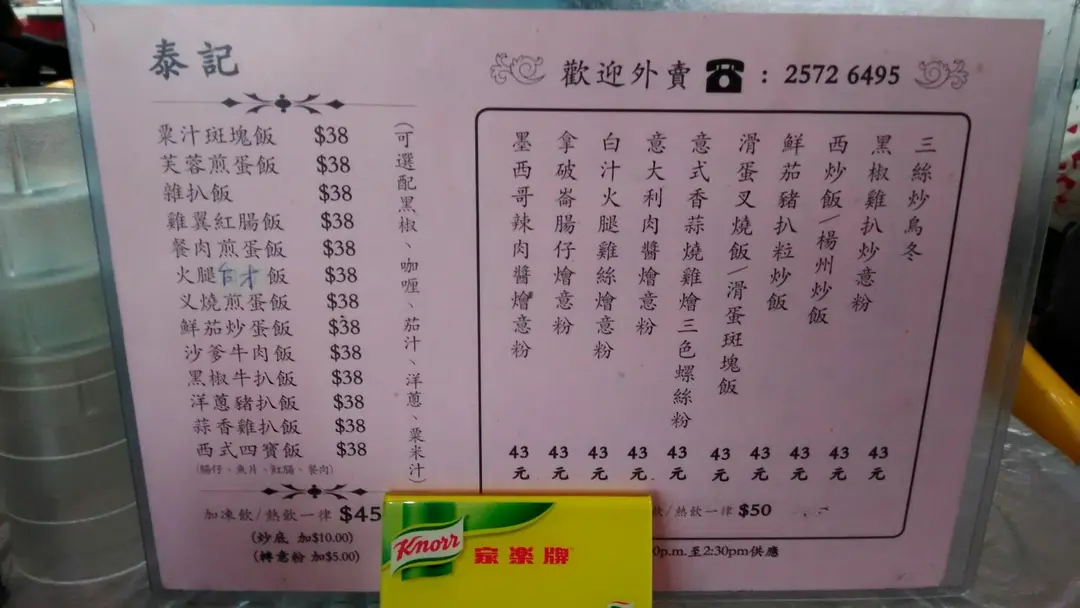 泰記
粟汁斑塊飯 $38
芙蓉煎蛋飯 $38
雜扒飯 $38
雞翼紅腸飯 $38
餐肉煎蛋飯 $38
火腿 飯 $38
叉燒煎蛋飯 $38
鮮茄炒蛋飯 $38
沙爹牛肉飯 $38
黑椒牛扒飯 $38
洋蔥豬扒飯 $38
蒜香雞扒飯 $38
西式四寶飯 $38
(腸仔、魚片、紅腸、餐肉)
(可選配黑椒、咖喱、茄汁、洋蔥、粟米汁)
加凍飲/熱飲一律 $45
(炒底 加$10.00)
(轉意粉 加$5.00)
歡迎外賣 ☎ : 2572 6495
三絲炒烏冬
黑椒雞扒炒意粉 43元
西炒飯/楊州炒飯 43元
鮮茄豬扒粒炒飯 43元
滑蛋叉燒飯/滑蛋斑塊飯 43元
意式香蒜燒雞燴三色螺絲粉 43元
意大利肉醬燴意粉 43元
白汁火腿雞絲燴意粉 43元
拿破崙腸仔燴意粉 43元
墨西哥辣肉醬燴意粉 43元
43元
飲/熱飲一律 $50
0p.m.至2:30pm供應
Knorr
家樂牌